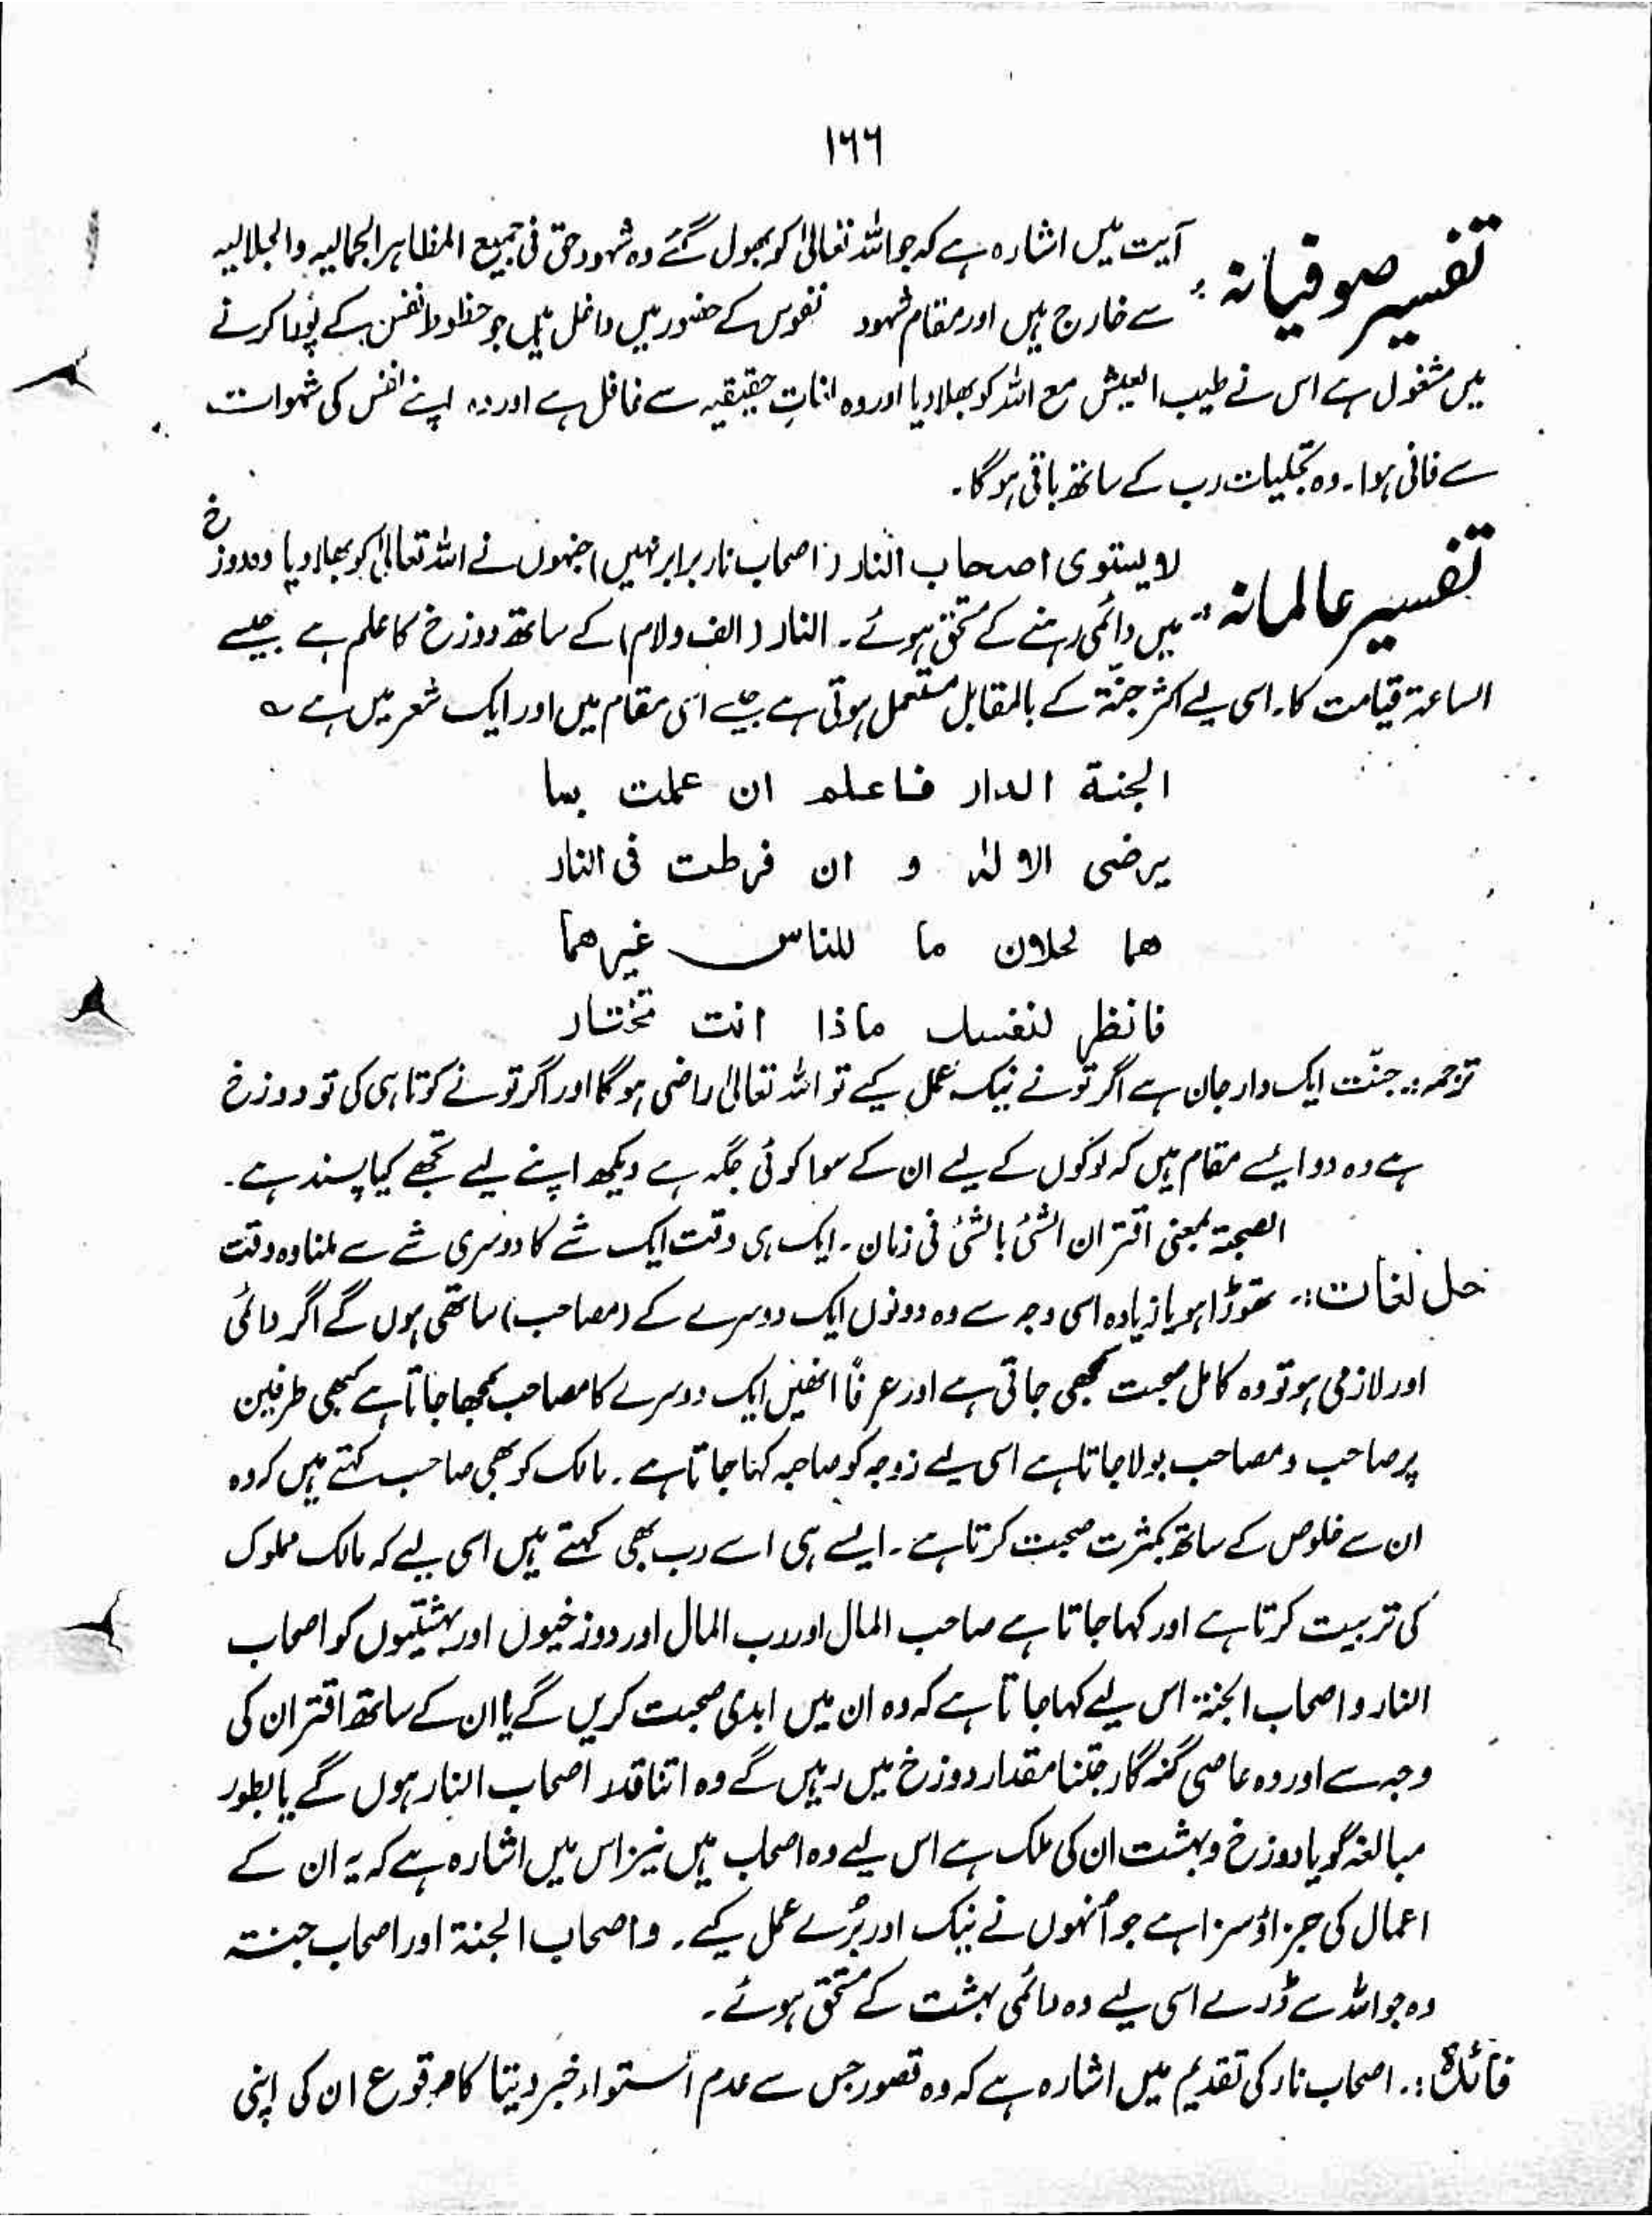 ۱۶۶
تفسیر صوفیانہ : آیت میں اشارہ ہے کہ جو اللہ تعالیٰ کو بھول گئے وہ شہود حق فی جمیع المظاہر الجمالیہ والجلالیہ
سے خارج ہیں اور مقام شہود نفوس کے حضور میں داخل ہیں جو حظوظ نفس کے پُورا کرنے
میں مشغول ہے اس نے طیب العیش مع اللہ کو بھلا دیا اور وہ لذاتِ حقیقیہ سے غافل ہے اور وہ اپنے نفس کی شہوات
سے فانی ہوا۔ وہ تجلیات رب کے ساتھ باقی ہوگا۔
تفسیر عالمانہ : لا یستوی اصحاب النار (اصحاب نار برابر نہیں) جنہوں نے اللہ تعالیٰ کو بھلا دیا وہ دوزخ
میں دائمی رہنے کے مستحق ہوئے۔ النار (الف ولام) کے ساتھ دوزخ کا علم ہے جیسے
الساعۃ قیامت کا۔ اسی لیے اکثر جنّۃ کے بالمقابل مستعمل ہوتی ہے جیسے اسی مقام میں اور ایک شعر میں ہے ؎
الجنة الدار فاعلم ان عملت بما
یرضی الالٰہ و ان فرطت فی النار
ھما لحلان ما للناس غیرھما
فانظر لنفسک ماذا انت تختار
ترجمہ :۔ جنّت ایک دار جان ہے اگر تو نے نیک عمل کیے تو اللہ تعالیٰ راضی ہوگا اور اگر تو نے کوتاہی کی تو دوزخ
ہے وہ دو ایسے مقام ہیں کہ لوگوں کے لیے ان کے سوا کوئی جگہ ہے دیکھ اپنے لیے تجھے کیا پسند ہے۔
الصحبۃ بمعنی اقتران الشئ بالشئ فی زمان۔ ایک ہی وقت ایک شے کا دوسری شے سے ملنا وہ وقت
حل لغات :۔ تھوڑا ہو یا زیادہ اسی وجہ سے وہ دونوں ایک دوسرے کے (مصاحب) ساتھی ہوں گے اگر دائمی
اور لازمی ہو تو وہ کامل صحبت سمجھی جاتی ہے اور عرفاً انھیں ایک دوسرے کا مصاحب سمجھا جاتا ہے کبھی طرفین
پر صاحب و مصاحب بولا جاتا ہے اسی لیے زوجہ کو صاحبہ کہا جاتا ہے۔ مالک کو بھی صاحب کہتے ہیں کہ وہ
ان سے خلوص کے ساتھ بکثرت صحبت کرتا ہے۔ ایسے ہی اسے رب بھی کہتے ہیں اسی لیے کہ مالک مملوک
کی تربیت کرتا ہے اور کہا جاتا ہے صاحب المال اور رب المال اور دوزخیوں اور بہشتیوں کو اصحاب
النار و اصحاب الجنۃ اس لیے کہا جاتا ہے کہ وہ ان میں ابدی صحبت کریں گے یا ان کے ساتھ اقتران کی
وجہ سے اور وہ عاصی گنہگار جتنا مقدار دوزخ میں رہیں گے وہ اتنا قدر اصحاب النار ہوں گے یا بطور
مبالغہ گویا دوزخ و بہشت ان کی ملک ہے اس لیے وہ اصحاب ہیں نیز اس میں اشارہ ہے کہ یہ ان کے
اعمال کی جزاؤ سزا ہے جو اُنہوں نے نیک اور بُرے عمل کیے۔ واصحاب الجنۃ اور اصحاب جنتہ
وہ جو اللہ سے ڈرے اسی لیے وہ دائمی بہشت کے مستحق ہوئے۔
فائدہ :۔ اصحاب نار کی تقدیم میں اشارہ ہے کہ وہ تصور جس سے عدم استواء خبر دیتا کا وقوع ان کی اپنی